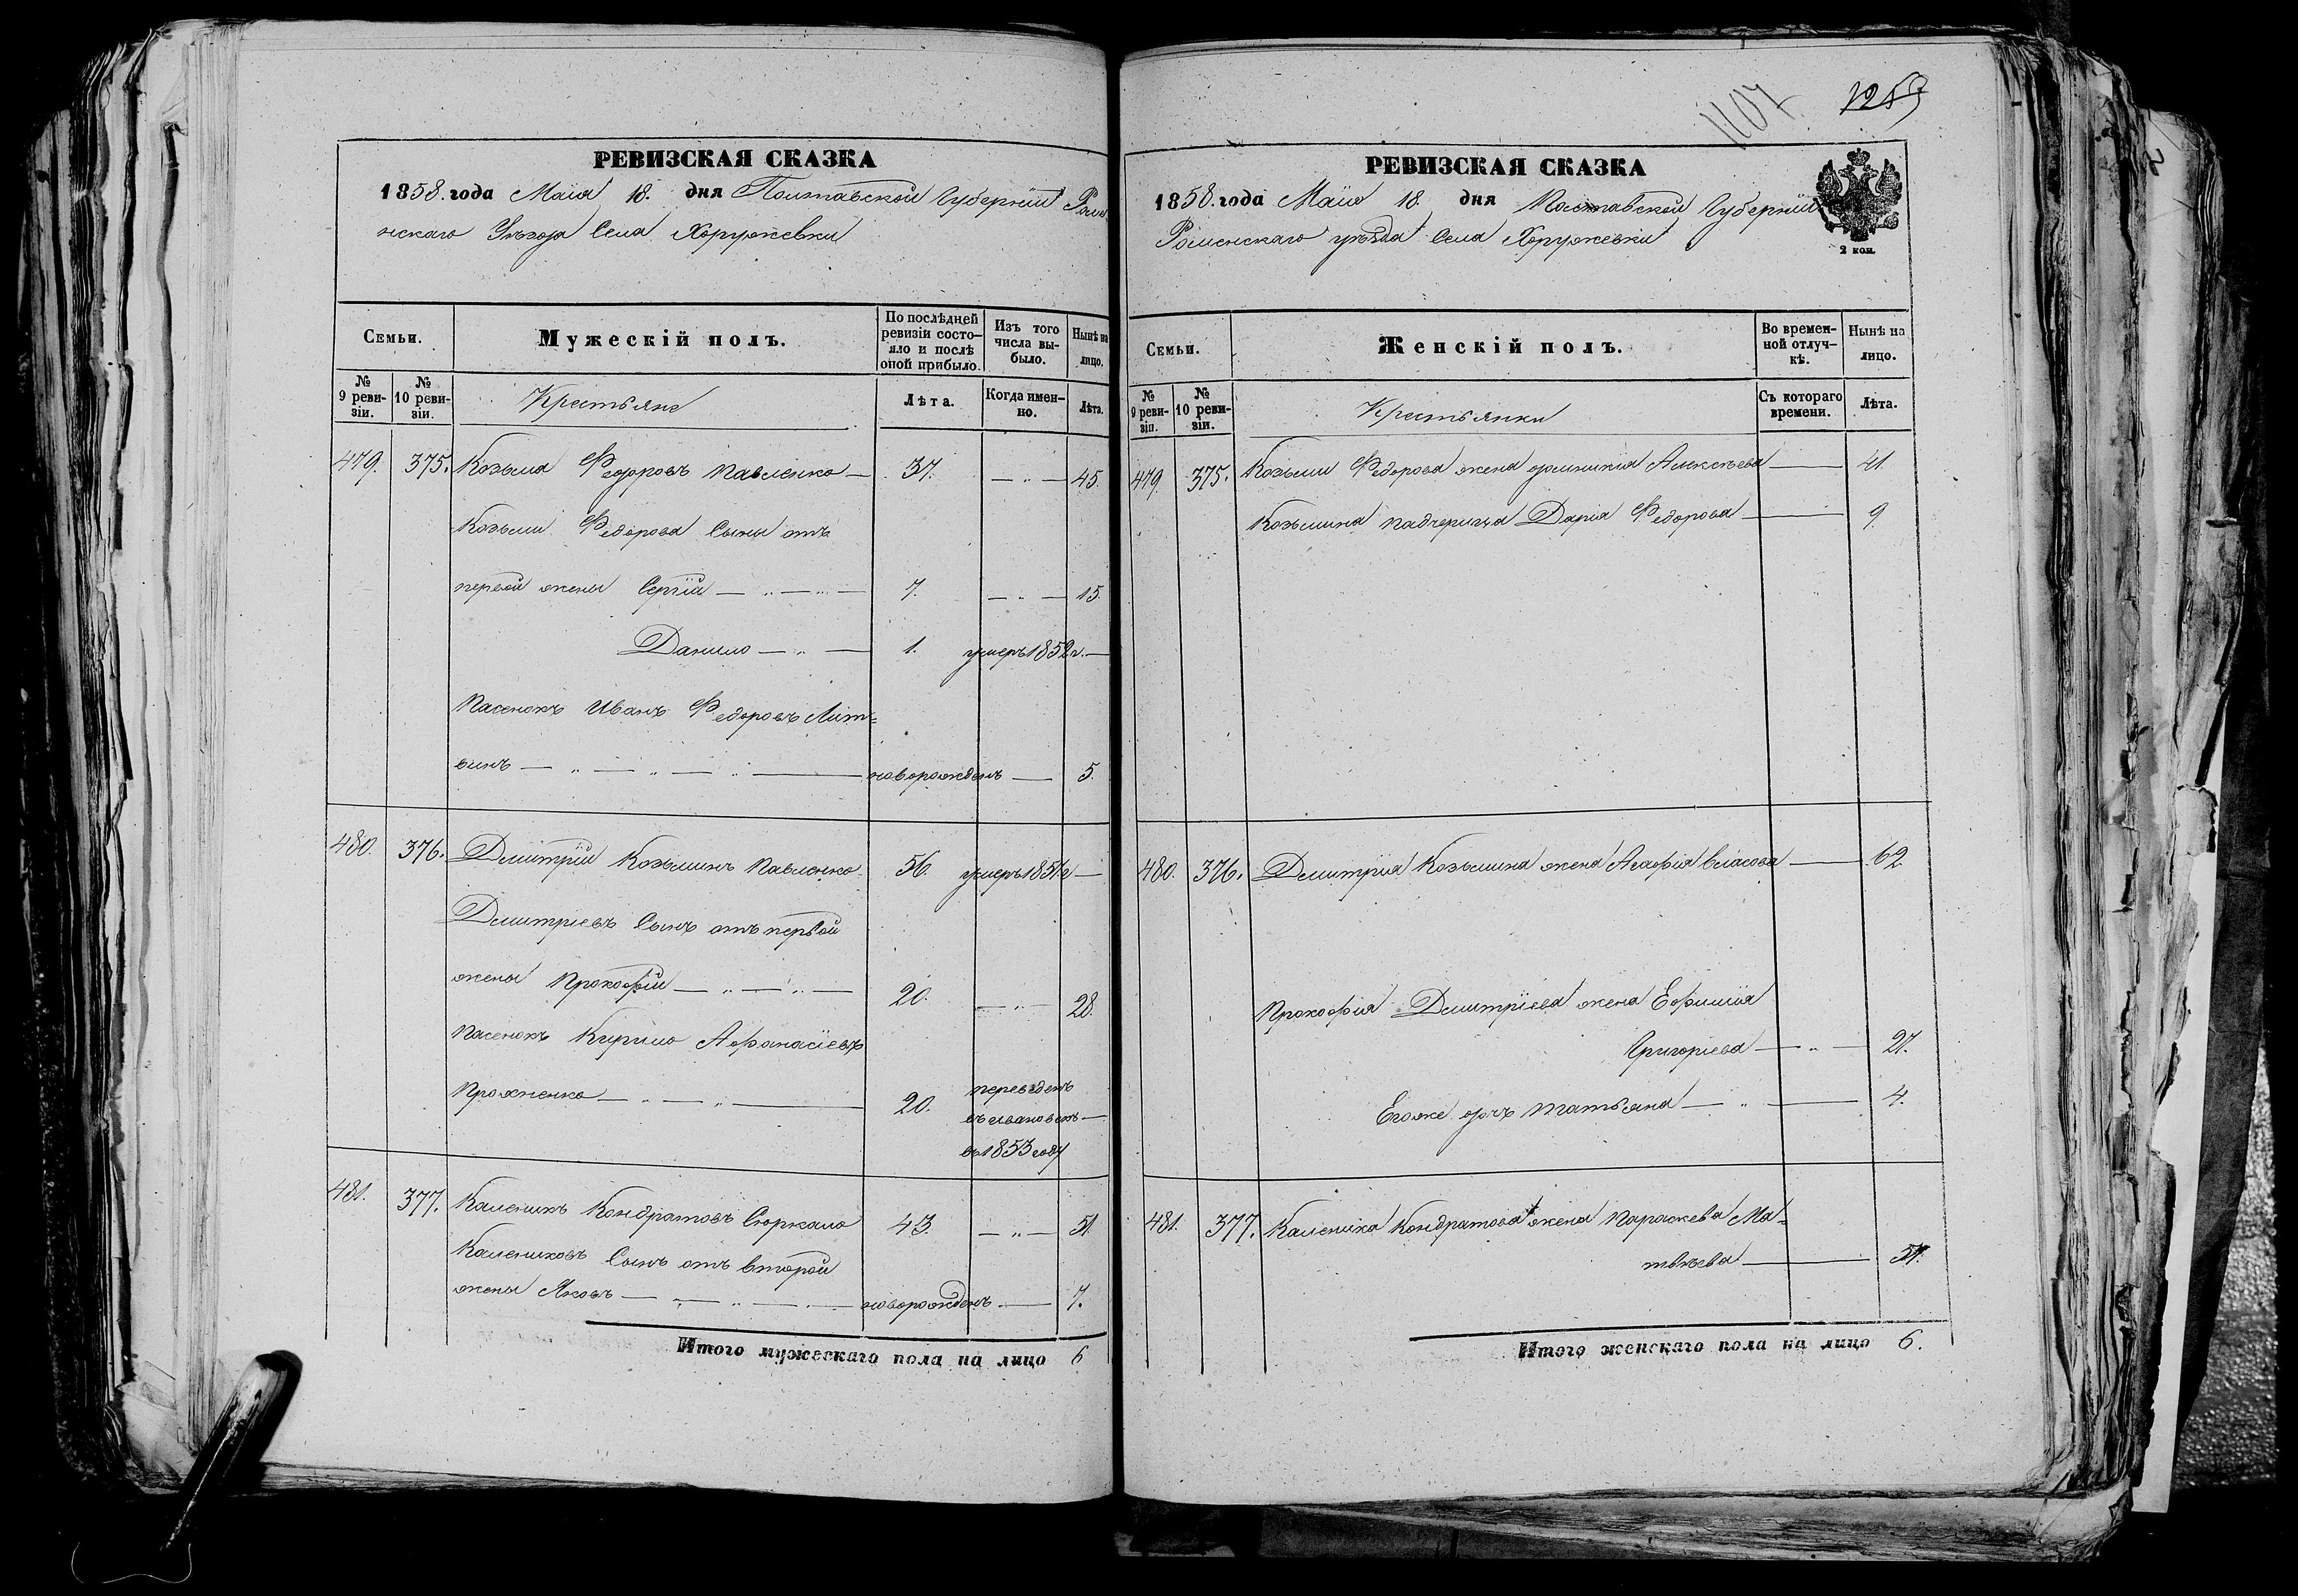 РЕВИЗСКАЯ СКАЗКА
1858. года Маія 18. дня Полтавской Губерніи Роме
нскаго Уѣзда Села Хоружевки
Семьи.
Мужескій полъ.
По послѣдней ревизіи состо-
яло и послѣ
оной прибыло.
Изъ того
числа вы-
было.
Нынѣ на
лицо.
№
9 реви-
зіи.
№
10 реви-
зіи.
Крестьяне
Лѣта.
Когда имен-
но.
Лѣта.
479. 375. Козьма Федоровъ Павленко — 37. — „ — 45.
Козьмы Федорова Сыны отъ
первой жены Сергій — „ — „ — 7. — „ — 15.
Данило — „ — 1. умеръ 1852 г. —
Пасенокъ Иванъ Федоровъ Лит=
винъ — „ — „ — „ — новорожденъ — 5.
480. 376. Дмитрій Козьминъ Павленко 56. умеръ 1851 г —
Дмитріевъ Сынъ отъ первой
жены Прокофій — „ — „ — 20. — „ — 28.
Пасенокъ Кирило Афанасіевъ
Проженко — „ — „ — 20. переведенъ
въ 1853 году
481. 377. Каленикъ Кондратовъ Сюркало 43. — „ — 51.
Калениковъ Сынъ отъ второй
жены Яковъ — „ — „ — „ — новорожденъ — 7.
Итого мужескаго пола на лицо 6
1107 1259
РЕВИЗСКАЯ СКАЗКА
1858. года Маія 18. дня Полтавской Губерніи
Роменскаго уѣзда Села Хоружевки
2 коп.
Семьи.
Женскій полъ.
Во времен-
ной отлуч-
кѣ.
Нынѣ на
лицо.
№
9 реви-
зіи.
№
10 реви-
зіи.
Крестьянки
Съ котораго
времени.
Лѣта.
479. 375. Козьмы Федорова жена Алексѣева — 41
Козьмина падчерица Дарія Федорова — 9.
480. 376. Дмитрія Козьмина жена Агафія Власова — 62
Прокофія Дмитріева жена Ефимія
Григоріева — „ — 27.
Егоже дочь Татьяна — „ — 4.
481. 377. Каленика Кондратова жена Параскева Ма=
твѣева — 51.
Итого женскаго пола на лицо 6.